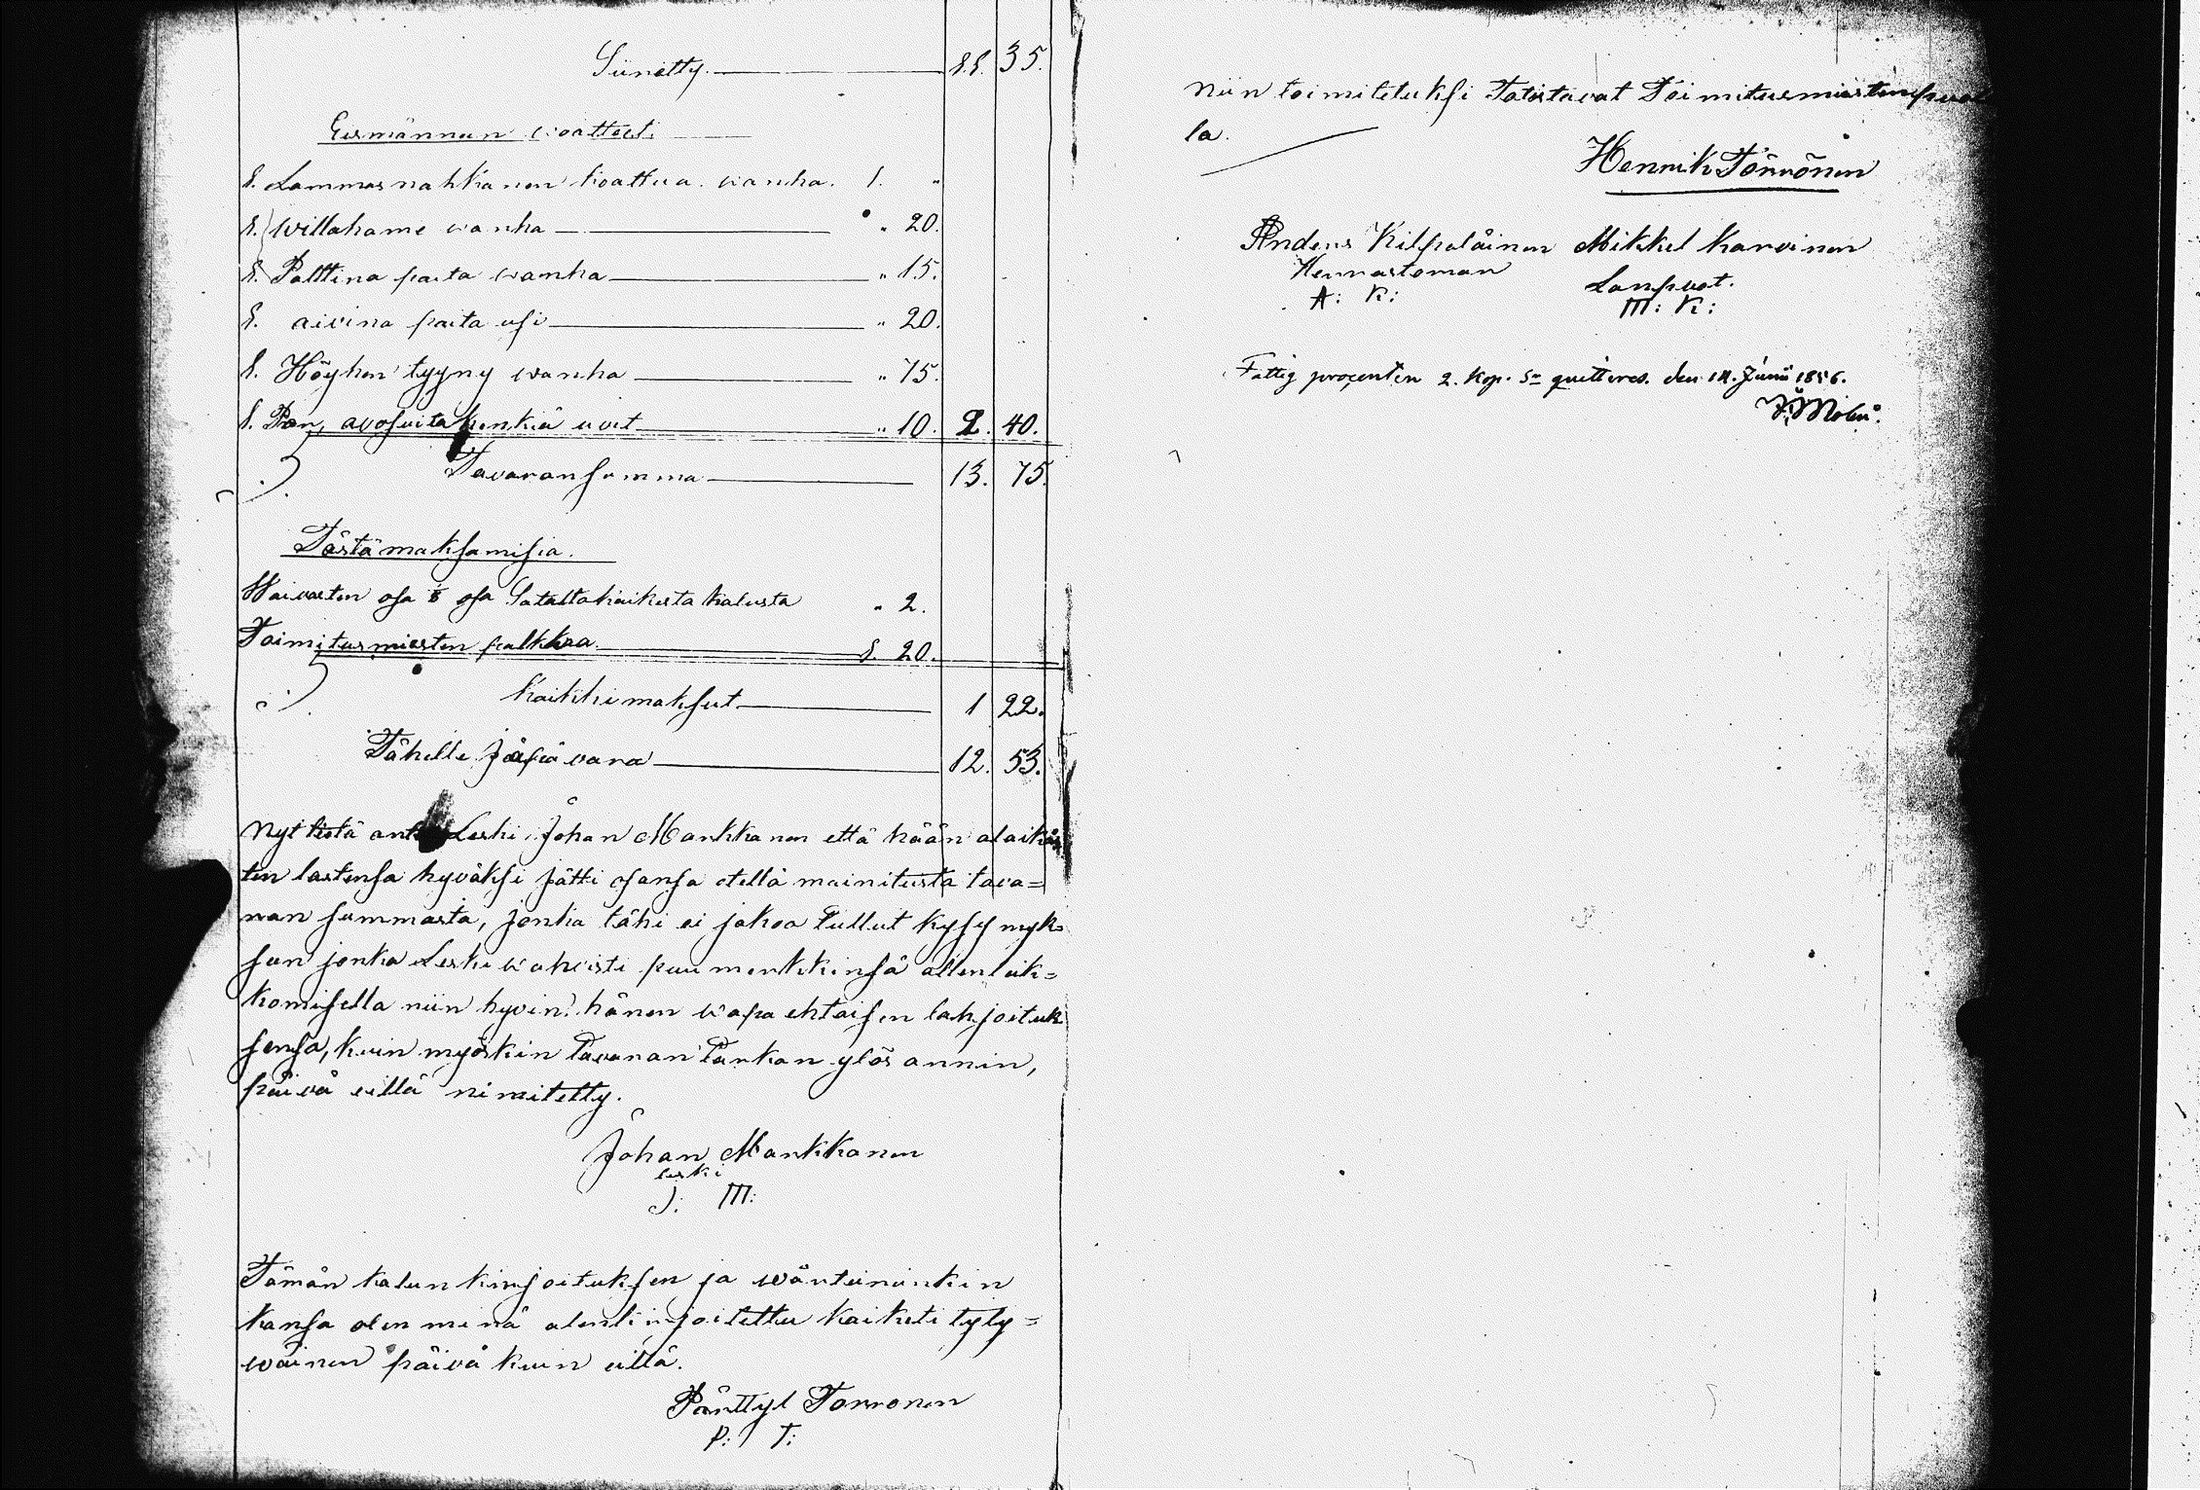 Siiretty. 11. 35.
Eesmännän waatteet
1. Lammasnahkanen koattua. wanha. 1. "
1. willahame wanha " 20.
1. Palttina paita wanha " 15.
1. aivina paita usi " 20.
1. Höyhen tyyny wanha " 75.
1. Par, avosuita kenkiä uvet " 10. 2. 40.
Tavaran summa 13. 75.
Tästä maksamisia.
Waivasten osa osa Satalta kaikesta kalusta " 2.
Toimitusmiesten palkkaa 1. 20.
Kaikki maksut 1 22.
Tähelle jääpi vara 12. 53.
Nyt tästä Leski Johan Markkanen että hään alaikäs
ten lastensa hyväksi jätti osansa otellä mainitusta tava=
ran summasta, jonka tähi ei jakoa tullut kysymyk=
seen jonka Leski wahvisti puumerkkinsä allenluk=
komisella niin hyvin hänen wapaehtaisen lahjoituk
sensa, kuin myöskin Tavaran Tarkan ylös annin,
päivä eillä nimitetty.
Johan Markkanen
leski
J: M:
Tämän kalun kirjoituksen ja wärteerinkin
kansa olen minä alenkirjoitettu kaiketi tyty=
wäinen päivä kuin eillä.
Pärttyl Torvonen
P: T:
Niin toimitetuksi Totistavat Toimitusmiestenpuol
la.
Henrik Törrönen
Anders Kilpeläinen Mikkel Karvinen
Hennastoman Lanpuot.
A: K: M: K:
Fattig procenten 2. Kop. Sr quitteres. den 14. Junii 1856.